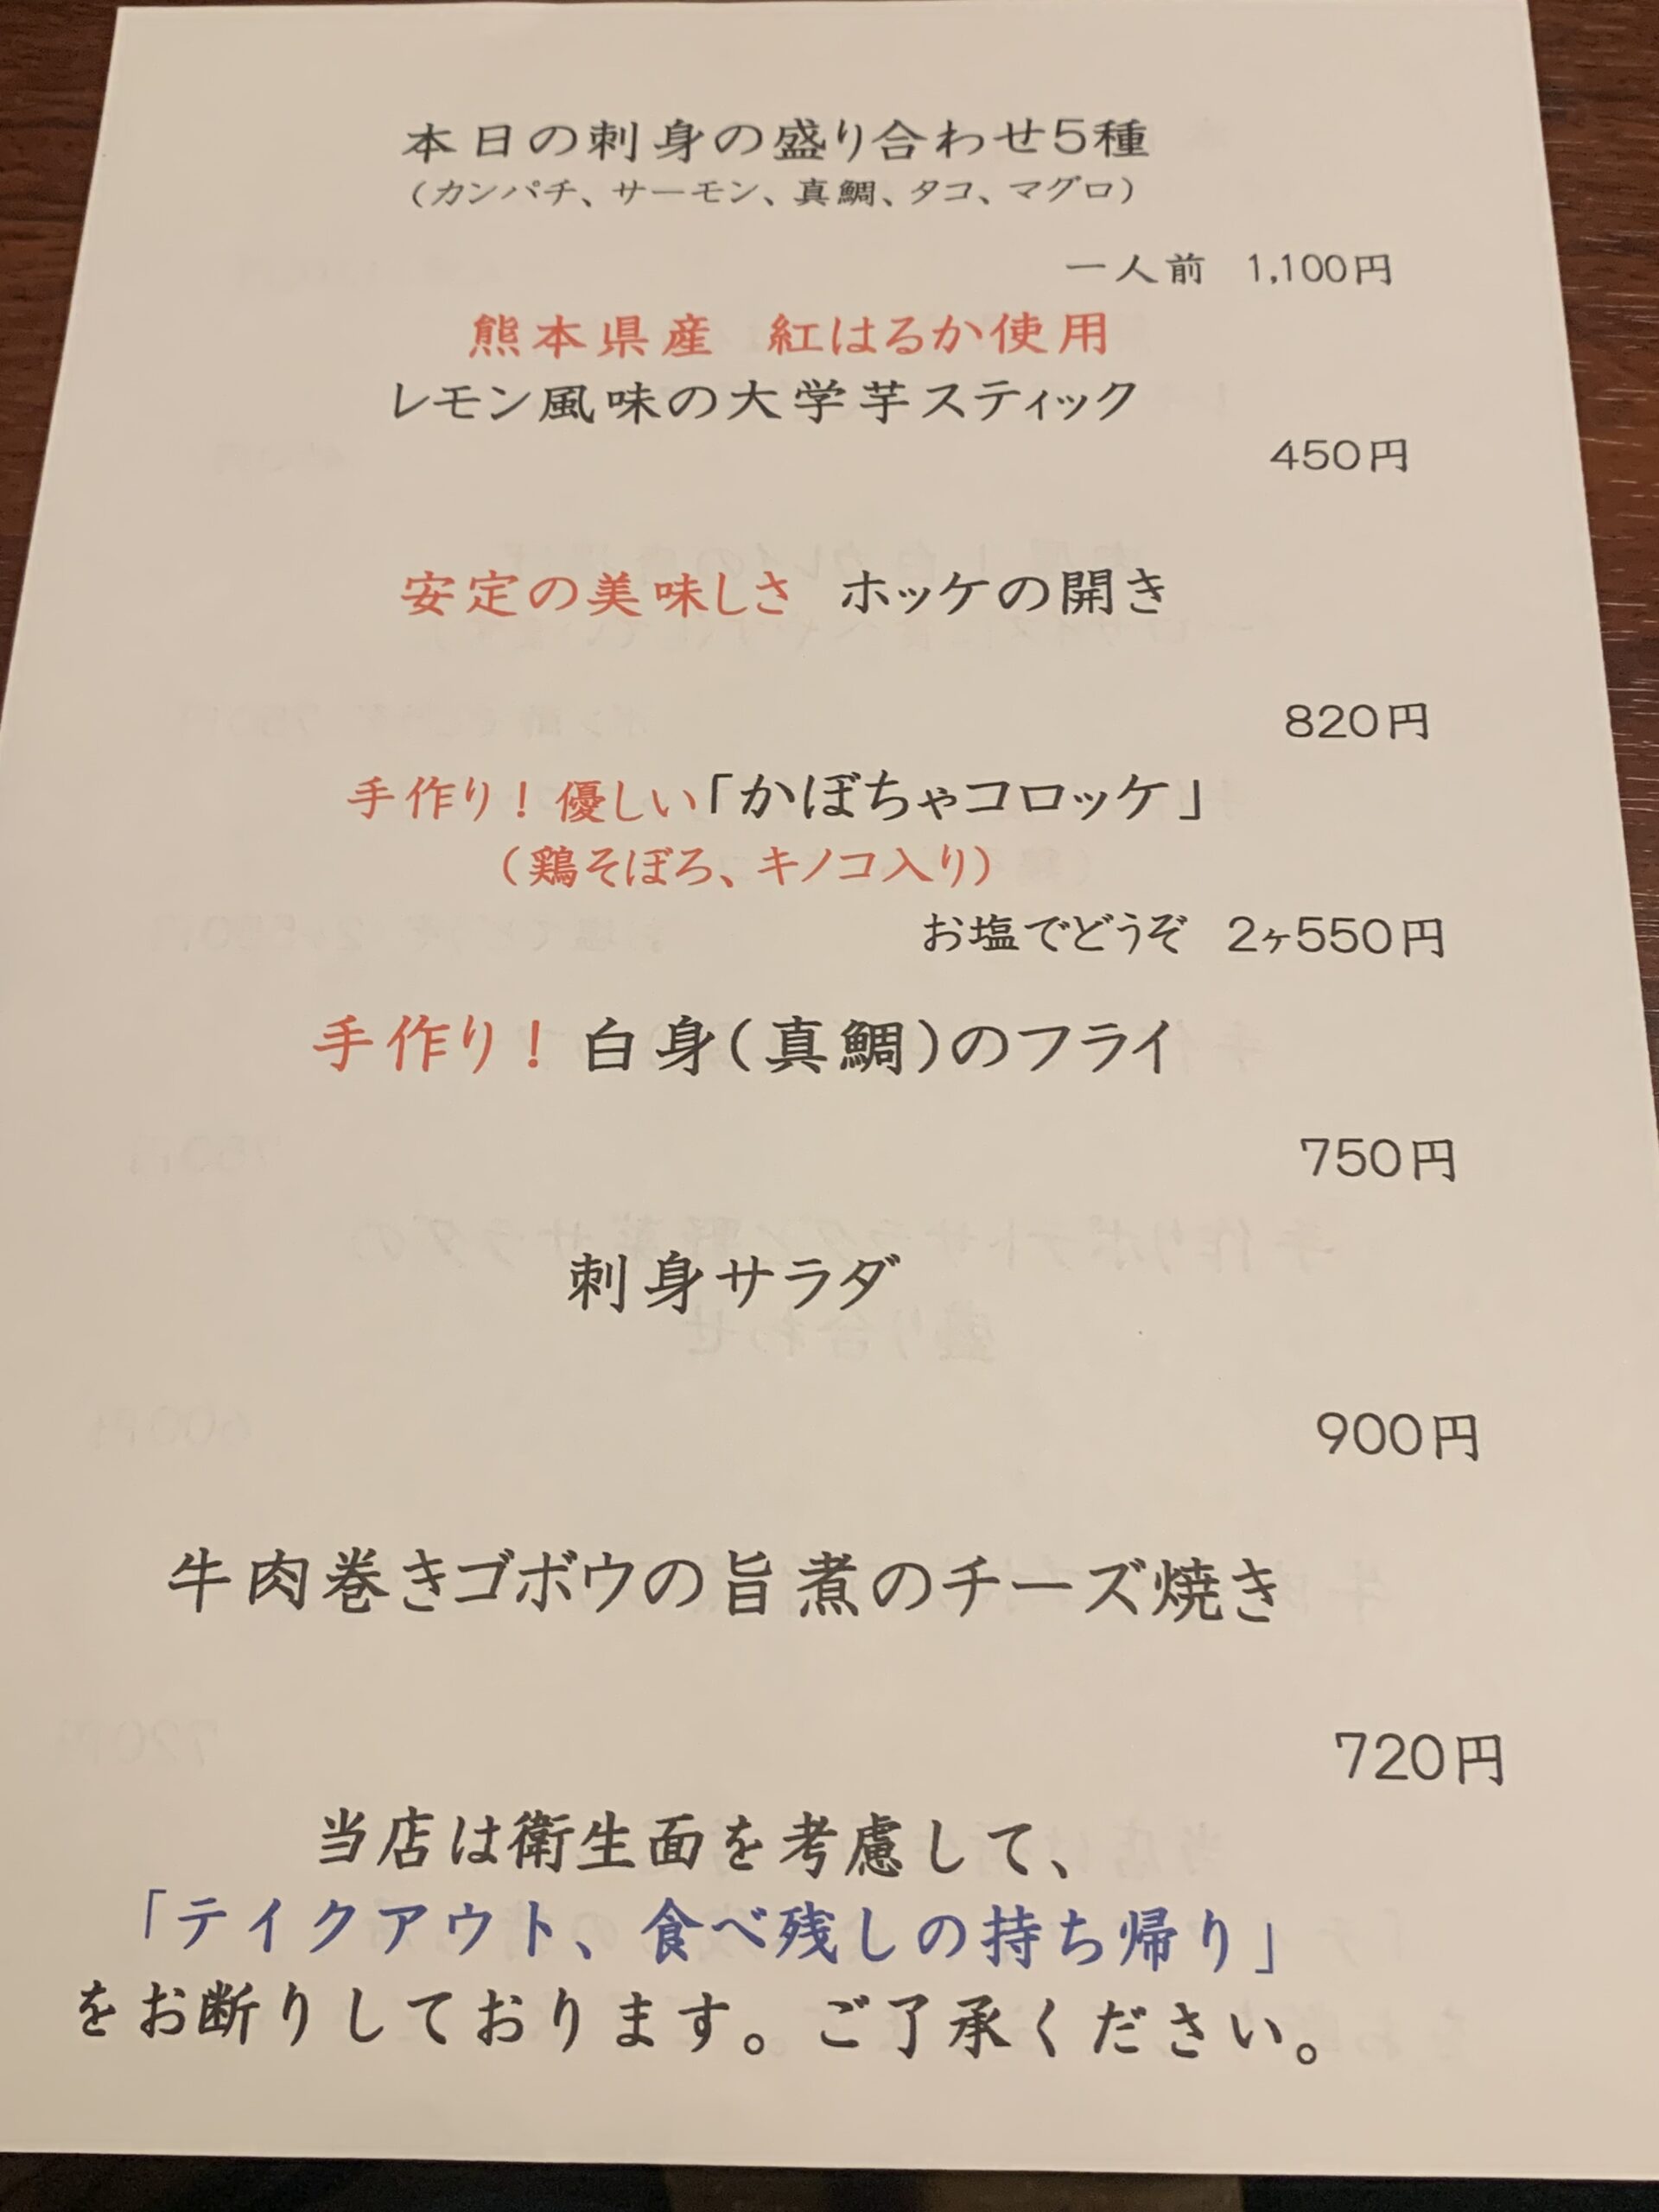 本日の刺身の盛り合わせ5種
（カンパチ、サーモン、真鯛、タコ、マグロ）
一人前 1,100円
熊本県産 紅はるか使用
レモン風味の大学芋スティック
450円
安定の美味しさ ホッケの開き
820円
手作り！優しい「かぼちゃコロッケ」
（鶏そぼろ、キノコ入り）
お塩でどうぞ 2ヶ550円
手作り！白身（真鯛）のフライ
750円
刺身サラダ
900円
牛肉巻きゴボウの旨煮のチーズ焼き
720円
当店は衛生面を考慮して、
「テイクアウト、食べ残しの持ち帰り」
をお断りしております。ご了承ください。